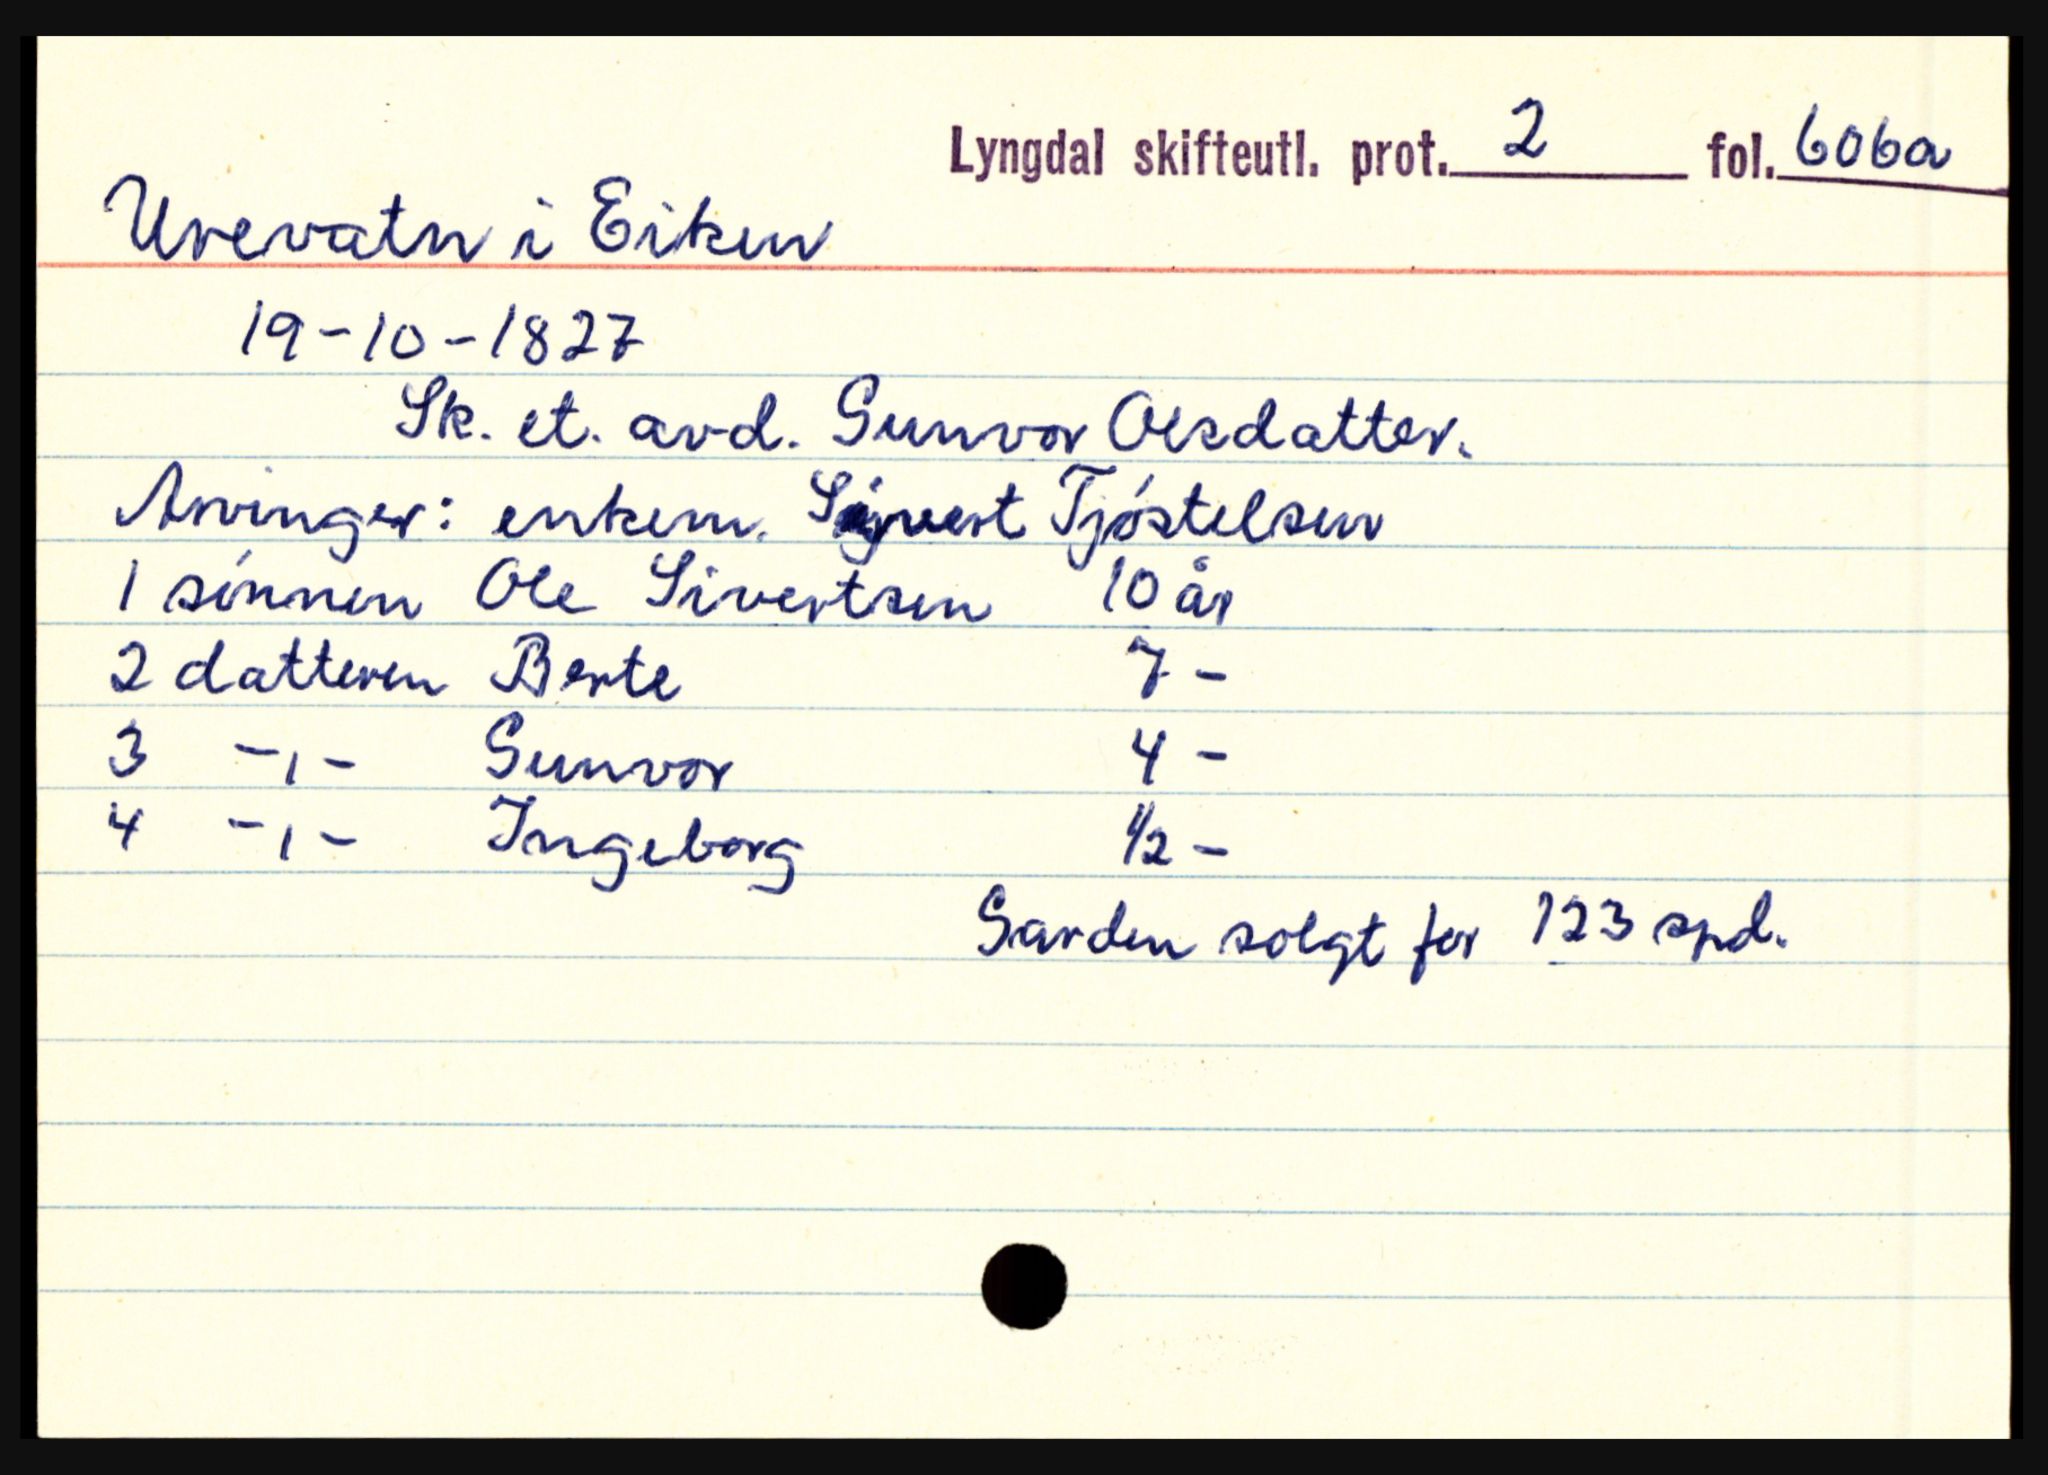 Lyngdal skifteutl. prot. 2 fol. 606a
Urevatn i Eiken
19-10-1827
Sk. et. avd. Gunvor Olsdatter.
Arvinger: enkem. Sigvert Tjøstelsen
1 sønnen Ole Sivertsen 10 år
2 datteren Berte 7 -
3 -ı- Gunvor 4 -
4 -ı- Ingeborg 1/2 -
Garden solgt for 123 spd.